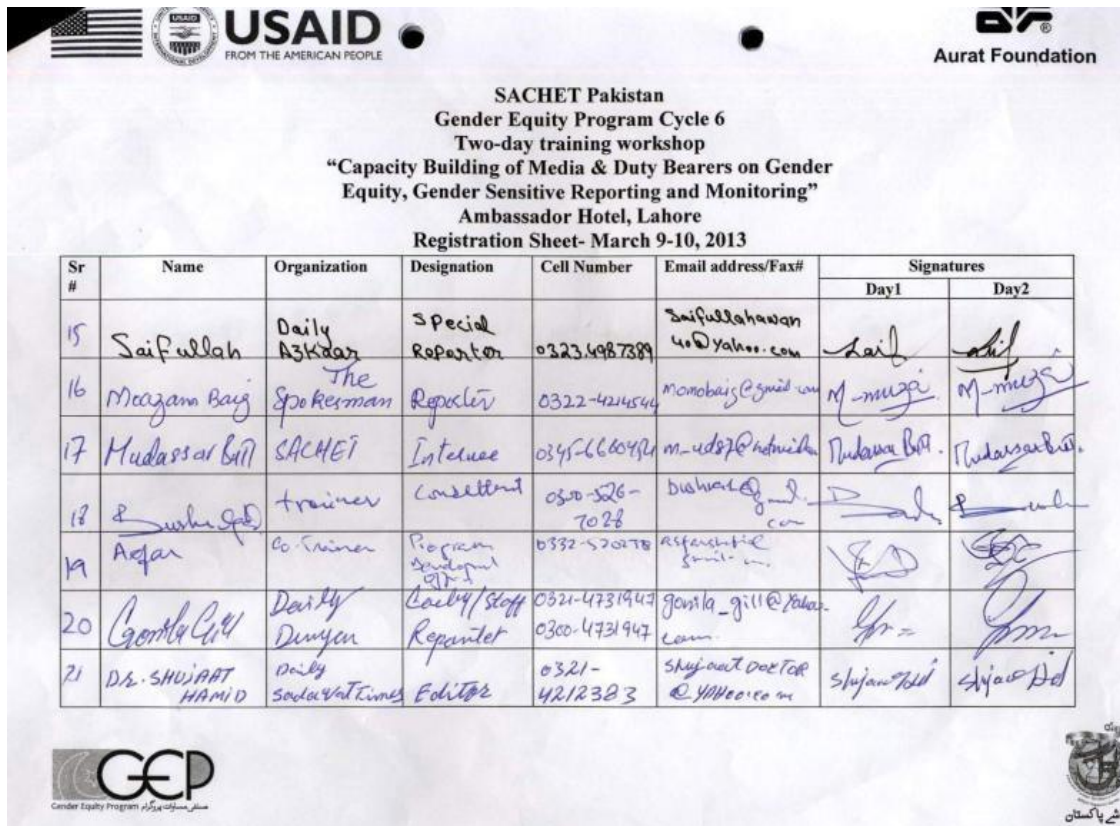 USAID
USAID
FROM THE AMERICAN PEOPLE
Aurat Foundation
SACHET Pakistan
Gender Equity Program Cycle 6
Two-day training workshop
“Capacity Building of Media & Duty Bearers on Gender
Equity, Gender Sensitive Reporting and Monitoring”
Ambassador Hotel, Lahore
Registration Sheet- March 9-10, 2013
Sr # Name Organization Designation Cell Number Email address/Fax# Signatures
Day1 Day2
15 Saifullah Daily Azkaar Special Reporter 0323.4987389 Saifullahawan40@Yahoo.com Saif
16 Moazam Baig The Spokesman Reporter 0322-4214544 M-muza M-muza
17 Mudassar Butt SACHET Internee Mudassar Butt. Mudassar Butt.
18 trainer 0300-526-7028
19 Co-Trainer Program
20 Gonila Gill Daily Dunya Reporter 0321-4731947 0300-4731947 gonila_gill@Yahoo.com
21 DR. SHUJAAT HAMID Daily Sadawat Times Editor 0321-4212383 ShujaatDOCTOR@YAHOO.com
GEP
Gender Equity Program صنفی مساوات پروگرام